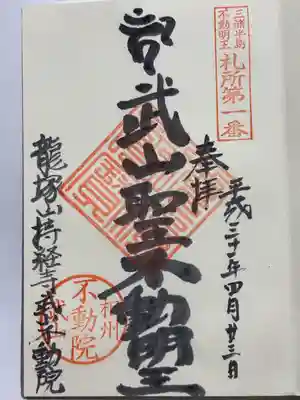 三浦半島
不動明王
札所第一番
奉拝
平成三十一年四月廿三日
武山聖不動明王
不動院
龍塚山持経寺武山不動院